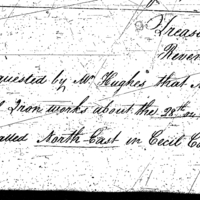 Treasu
Reven
quested by Mr Hughes that
Iron works about the 28th
alled North-East in Cecil Co